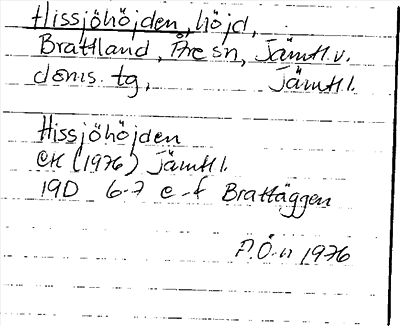 Hissjöhöjden, höjd,
Brattland, Åre sn, Jämtl. v.
doms. tg, Jämtl l.
Hissjöhöjden
EK (1976) Jämtl l.
19D 6-7 e-f Brattäggen
P.Ö-n 1976